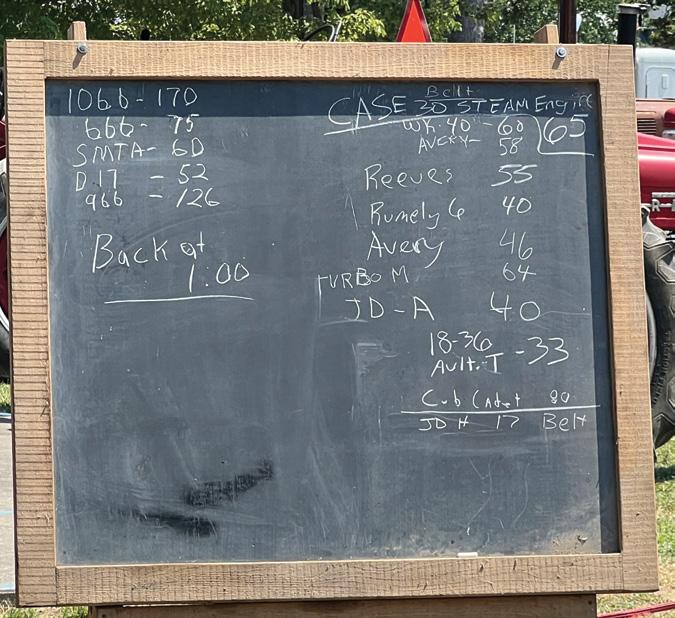 1066-170
666- 75
SMTA- 60
D.17 - 52
966 - 126
Back at
1:00
Belt
CASE 30 STEAM Engine
WK-40 - 60 65
AVERY- 58
Reeves 55
Rumely 6 40
Avery 46
TURBO M 64
JD-A 40
18-36 -33
Ault.-T
Cub Cadet 80
JD H 17 Belt